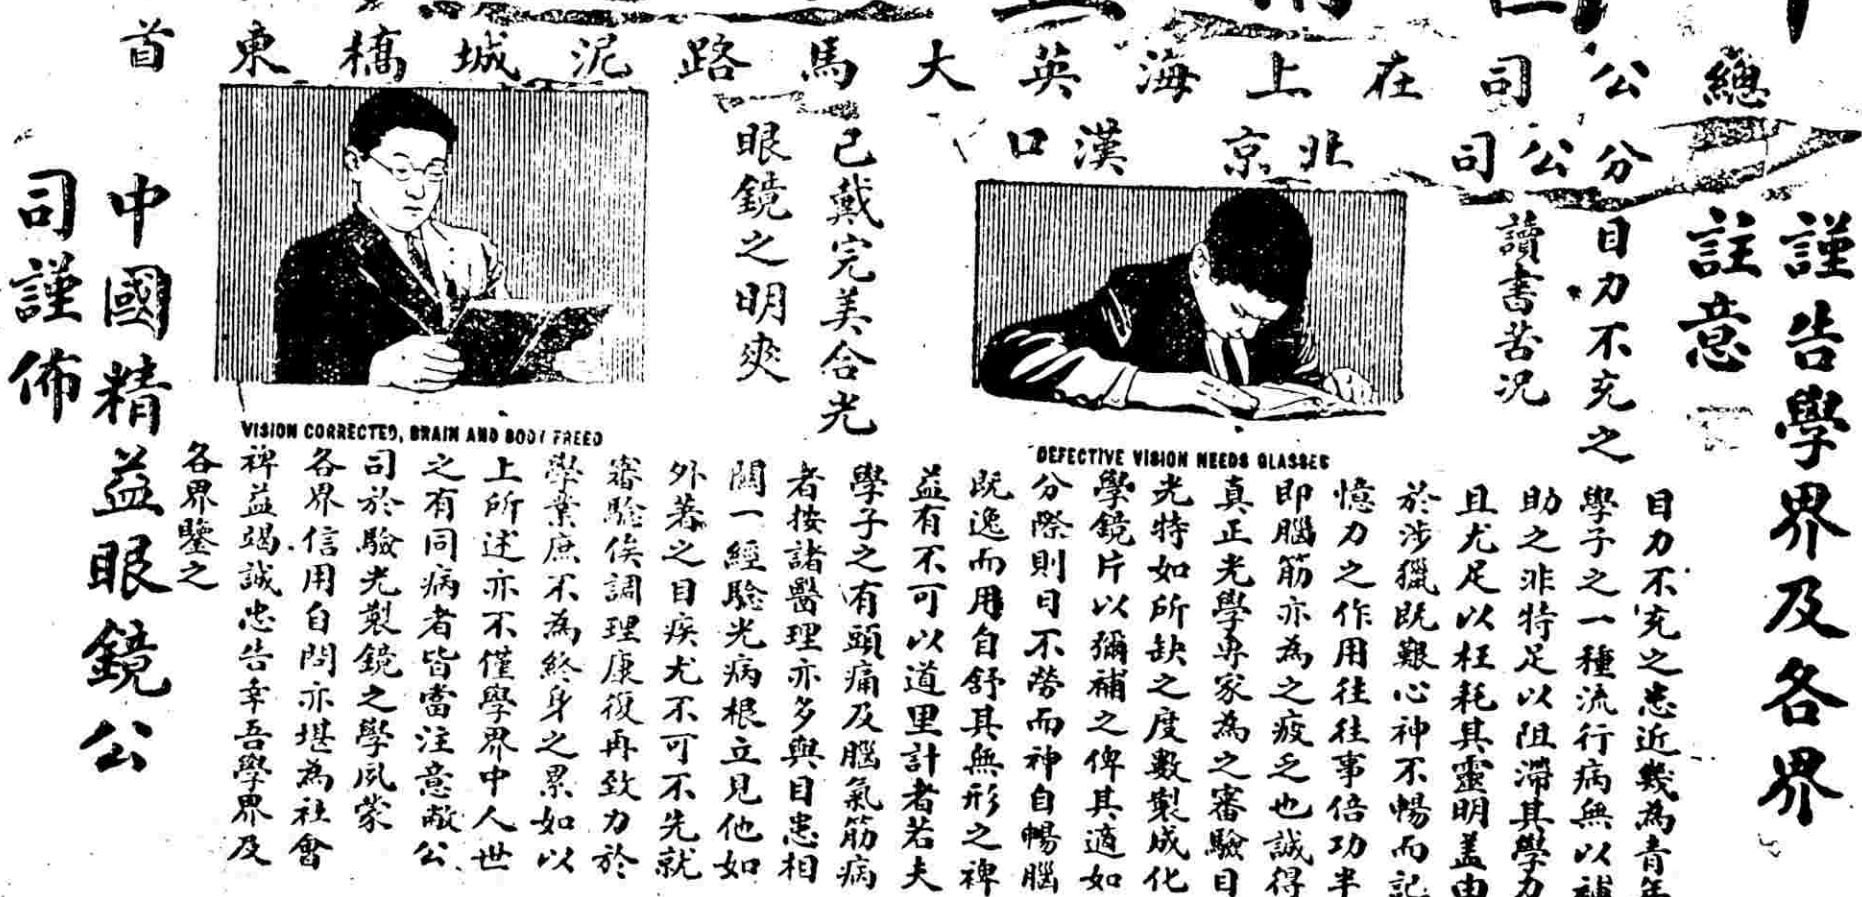 總公司在上海英大馬路泥城橋東首
分公司 北京 漢口
謹告學界及各界
註意
目力不充之
讀書苦况
DEFECTIVE VISION NEEDS GLASSES
已戴完美合光
眼鏡之明爽
VISION CORRECTED, BRAIN AND BODY FREED
目力不充之患近幾為青年
學子之一種流行病無以補
助之非特足以阻滯其學力
且尤足以枉耗其靈明蓋由
於涉獵既艱心神不暢而記
憶力之作用往往事倍功半
即腦筋亦為之疲乏也誠得
真正光學專家為之審驗目
光特如所缺之度數製成化
學鏡片以彌補之俾其適如
分際則目不勞而神自暢腦
既逸而用自舒其無形之裨
益有不可以道里計者若夫
學子之有頭痛及腦氣筋病
者按諸醫理亦多與目患相
關一經驗光病根立見他如
外著之目疾尤不可不先就
審驗俟調理康復再致力於
學業庶不為終身之累如以
上所述亦不僅學界中人世
之有同病者皆當注意敝公
司於驗光製鏡之學夙蒙
各界信用自問亦堪為社會
裨益竭誠忠告幸吾學界及
各界鑒之
中國精益眼鏡公
司謹佈